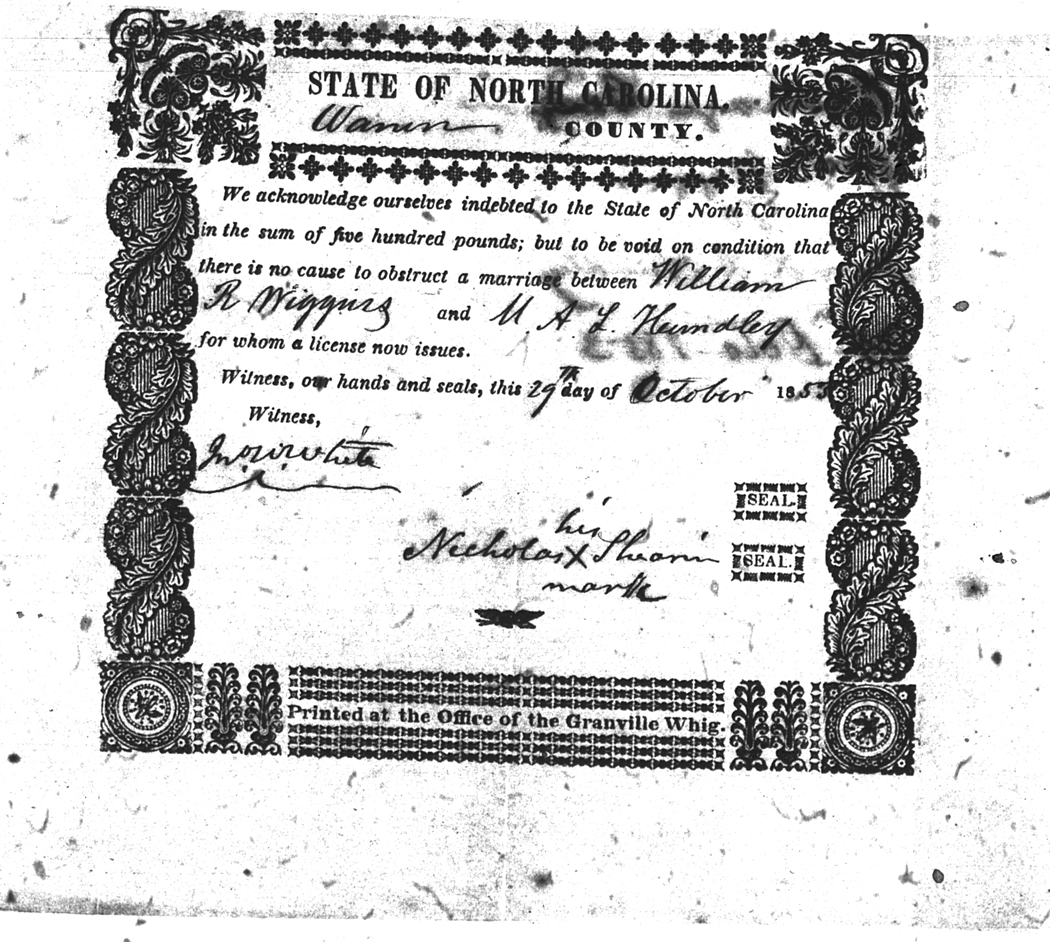 STATE OF NORTH CAROLINA.
Warren COUNTY.
We acknowledge ourselves indebted to the State of North Carolina
in the sum of five hundred pounds; but to be void on condition that
there is no cause to obstruct a marriage between William
R Wiggins and M. A L. Hundley
for whom a license now issues.
Witness, our hands and seals, this 29th day of October 1855
Witness,
Jno W White
SEAL.
his
Nicholas X Shearin SEAL.
mark
Printed at the Office of the Granville Whig.